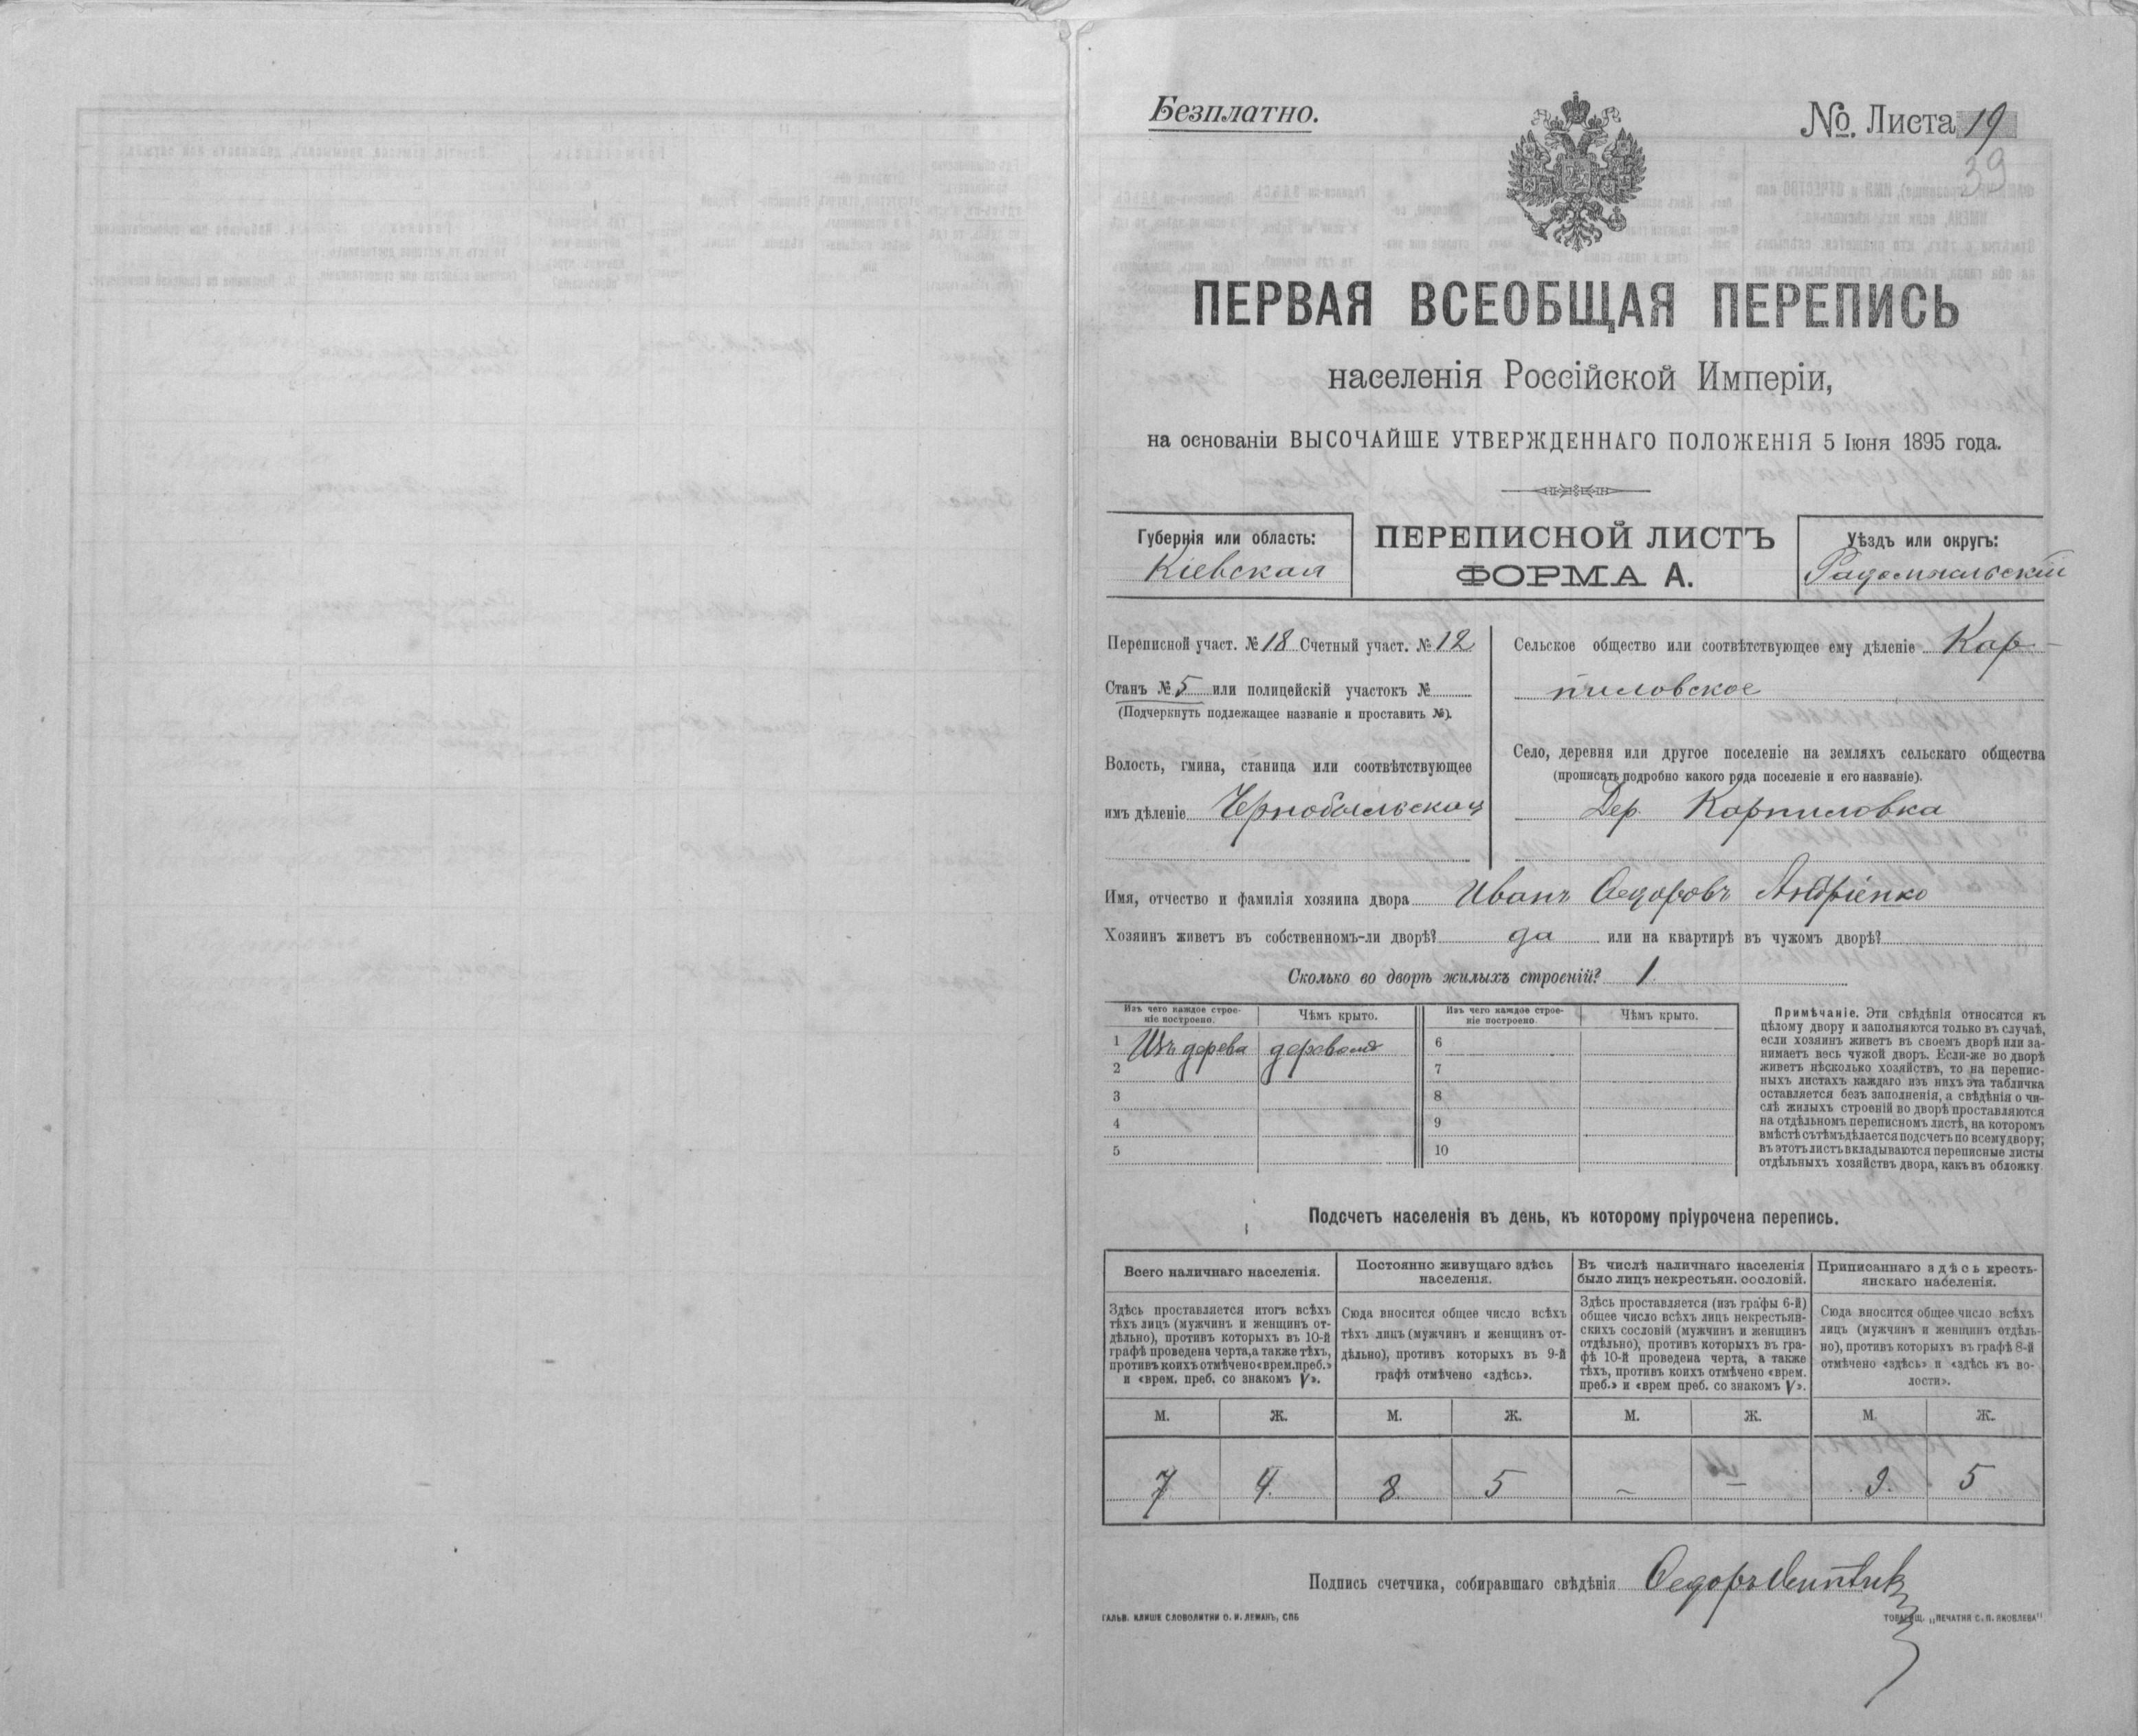 Безплатно.
№ Листа 19
39
ПЕРВАЯ ВСЕОБЩАЯ ПЕРЕПИСЬ
населенія Россійской Имперіи,
на основаніи ВЫСОЧАЙШЕ УТВЕРЖДЕННАГО ПОЛОЖЕНІЯ 5 Іюня 1895 года.
Губернія или область:
Кіевская
ПЕРЕПИСНОЙ ЛИСТЪ
ФОРМА А.
Уѣздъ или округъ:
Радомысльскій
Переписной участ. № 18 Счетный участ. № 12
Станъ № 5 или полицейскій участокъ №
(Подчеркнуть подлежащее названіе и проставить №).
Волость, гмина, станица или соотвѣтствующее
имъ дѣленіе Чернобыльская
Сельское общество или соотвѣтствующее ему дѣленіе Кар-
пиловское
Село, деревня или другое поселеніе на земляхъ сельскаго общества
(прописать подробно какого рода поселеніе и его названіе).
Дер. Карпиловка
Имя, отчество и фамилія хозяина двора Иванъ Ѳедоровъ Андріенко
Хозяинъ живетъ въ собственномъ-ли дворѣ? да или на квартирѣ въ чужомъ дворѣ?
Сколько во дворѣ жилыхъ строеній? 1
Изъ чего каждое строе-
ніе построено.
Чѣмъ крыто.
Изъ чего каждое строе-
ніе построено
Чѣмъ крыто.
1 Изъ дерева деревомъ 6
2 7
3 8
4 9
5 10
Примѣчаніе. Эти свѣдѣнія относятся къ
цѣлому двору и заполняются только въ случаѣ,
если хозяинъ живетъ въ своемъ дворѣ или за-
нимаетъ весь чужой дворъ. Если-же во дворѣ
живетъ нѣсколько хозяйствъ, то на перепис-
ныхъ листахъ каждаго изъ нихъ эта табличка
оставляется безъ заполненія, а свѣдѣнія о чи-
слѣ жилыхъ строеній во дворѣ проставляются
на отдѣльномъ переписномъ листѣ, на которомъ
вмѣстѣ съ тѣмъ дѣлается подсчетъ по всему двору;
въ этотъ листъ вкладываются переписные листы
отдѣльныхъ хозяйствъ двора, какъ въ обложку
Подсчетъ населенія въ день, къ которому пріурочена перепись.
Всего наличнаго населенія.
Здѣсь проставляется итогъ всѣхъ
тѣхъ лицъ (мужчинъ и женщинъ от-
дѣльно), противъ которыхъ въ 10-й
графѣ проведена черта, а также тѣхъ,
противъ коихъ отмѣчено «врем. преб.»
и «врем. преб. со знакомъ V».
Постоянно живущаго здѣсь
населенія.
Сюда вносится общее число всѣхъ
тѣхъ лицъ (мужчинъ и женщинъ от-
дѣльно), противъ которыхъ въ 9-й
графѣ отмѣчено «здѣсь».
Въ числѣ наличнаго населенія
было лицъ некрестьян. сословій.
Здѣсь проставляется (изъ графы 6-й)
общее число всѣхъ лицъ некрестьян-
скихъ сословій (мужчинъ и женщинъ
отдѣльно), противъ которыхъ въ гра-
фѣ 10-й проведена черта, а также
тѣхъ, противъ коихъ отмѣчено «врем.
преб.» и «врем преб. со знакомъ V».
Приписаннаго здѣсь кресть-
янскаго населенія.
Сюда вносится общее число всѣхъ
лицъ (мужчинъ и женщинъ отдѣль-
но), противъ которыхъ въ графѣ 8-й
отмѣчено «здѣсь» и «здѣсь въ во-
лости».
М. Ж. М. Ж. М. Ж. М. Ж.
7 4. 8. 5 – – 9. 5
Подпись счетчика, собиравшаго свѣдѣнія Ѳедоръ
ГАЛЬВ. КЛИШЕ СЛОВОЛИТНИ О. И. ЛЕМАНЪ, СПБ
ТОВАРИЩ. „ПЕЧАТНЯ С. П. ЯКОВЛЕВА"